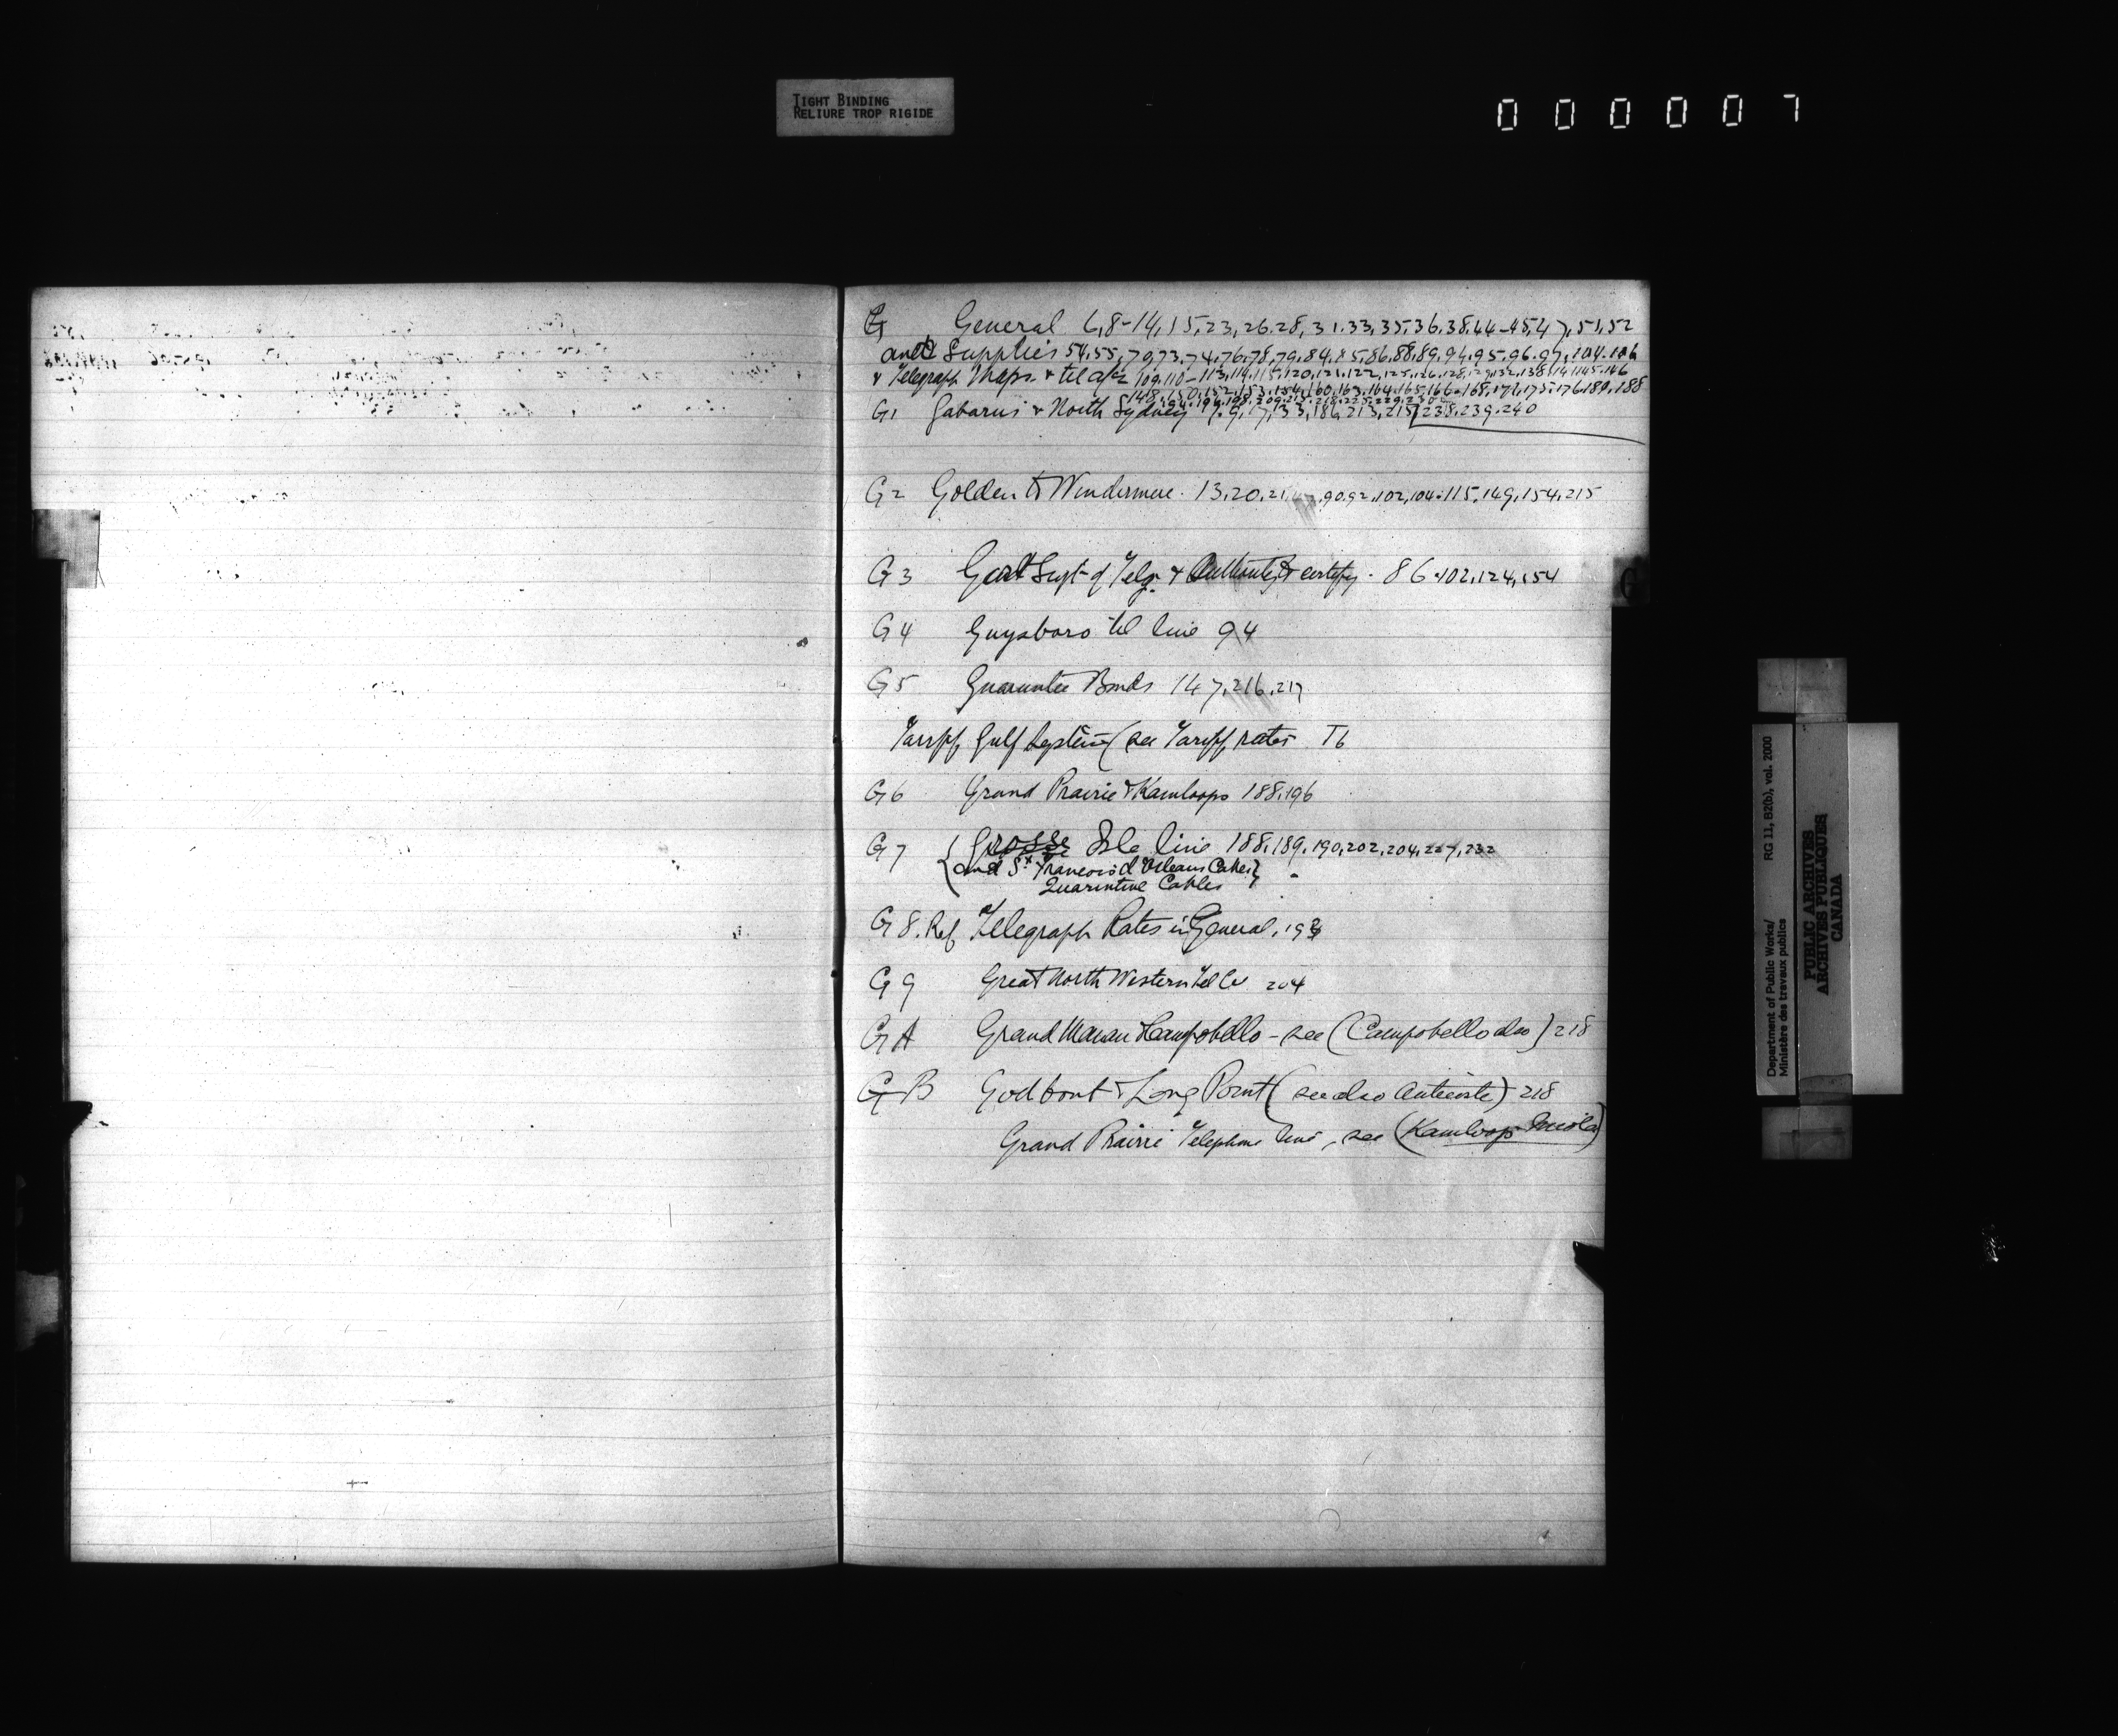 TIGHT BINDING
RELIURE TROP RIGIDE
000007
G General 6,8-14,15,23,26.28,31.33,35.36.38.44-45.47,51,52
and Supplies 54,55,70,73,74,76,78,79,84,85,86,88,89,94,95.96.97,104.106
& Telegraph Maps & tel 109.110-113,114,115,120,121,122,125,126,128,129,132,138,141,145.146
148,150,152,153,154,160,163,164,165,166-168,171,175.176.180,188
G1 Gabarus & North Sydney 133,186,213,215 238,239.240
G2 Golden to Windermere. 13,20,21, 90.92,102,104.115,149,154,215
G3 Govt Supt of Telg. & certify. 86.102,124,154
G4 Guysboro tel line 94
G5 Guarantee Bonds 147,216,217
Tariff Gulf System (see Tariff rates T6
G6 Grand Prairie & Kamloops 188,196
G7 Grosse Isle line 188,189,190,202,204,227,232
and St Francois d'Orleans Cables
Quarintine Cables
G8. Ref Telegraph Rates in General, 193
G9 Great North Western Tel Co 204
GA Grand Manan & Campobello - see (Campobello also) 218
GB Godbout & Long Point (see also Anticosti) 218
Grand Prairie Telephone line, see (Kamloops Nicola)
G
Department of Public Works/
Ministère des travaux publics
RG 11, B2(b), vol. 2000
PUBLIC ARCHIVES
ARCHIVES PUBLIQUES
CANADA